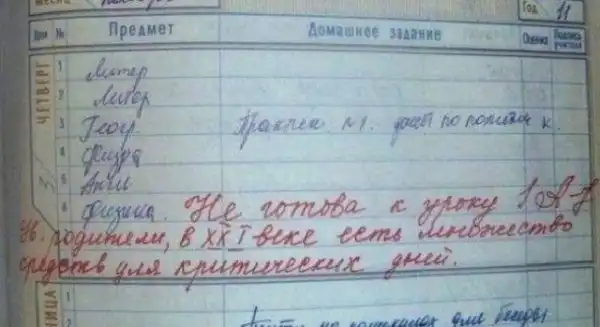 Год 11
Дни № Предмет Домашнее задание Оценка Подпись учителя
ЧЕТВЕРГ
1 Литер
2 Литер
3 Геогр. Практич. №1.
4 Физра
5 Англ
6 Физика. Не готова к уроку
Ув. родители, в XXI веке есть множество
средств для критических дней.
1
2 для беседы